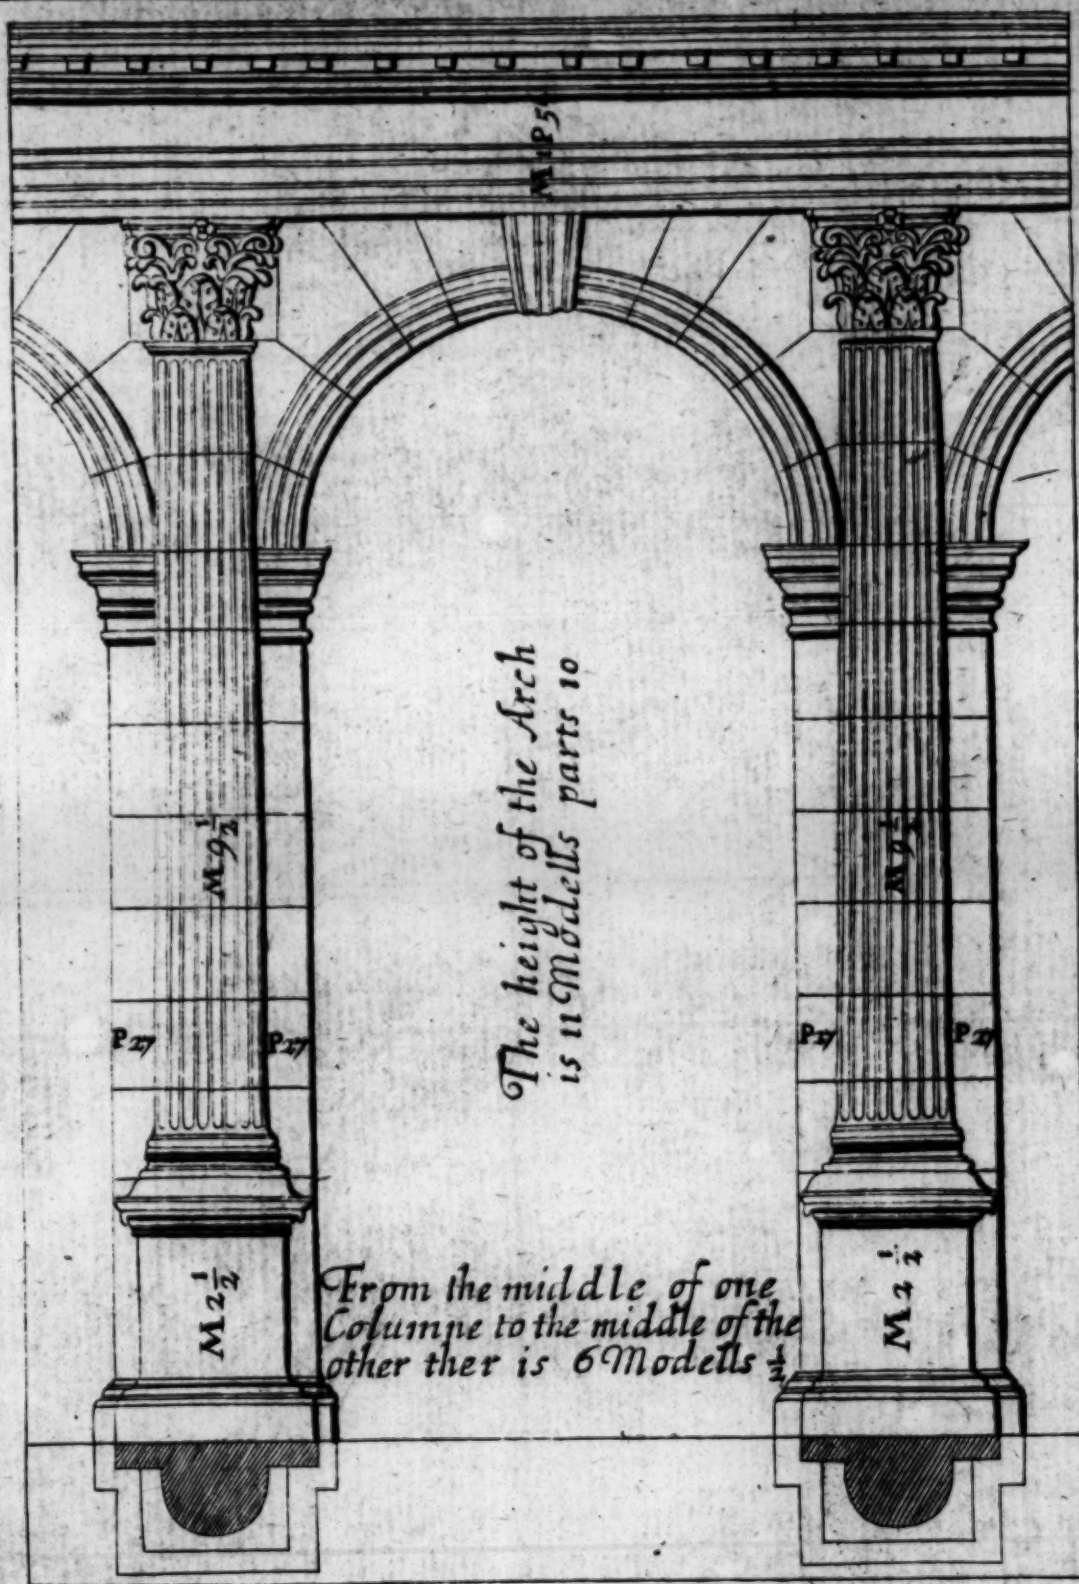 M 1 P 5
The height of the Arch
is 11 Modells parts 10
M 9 1/2
M 9 1/2
P 27
P 27
P 27
P 27
M 2 1/2
M 2 1/2
From the middle of one
Columne to the middle of the
other ther is 6 Modells 1/2